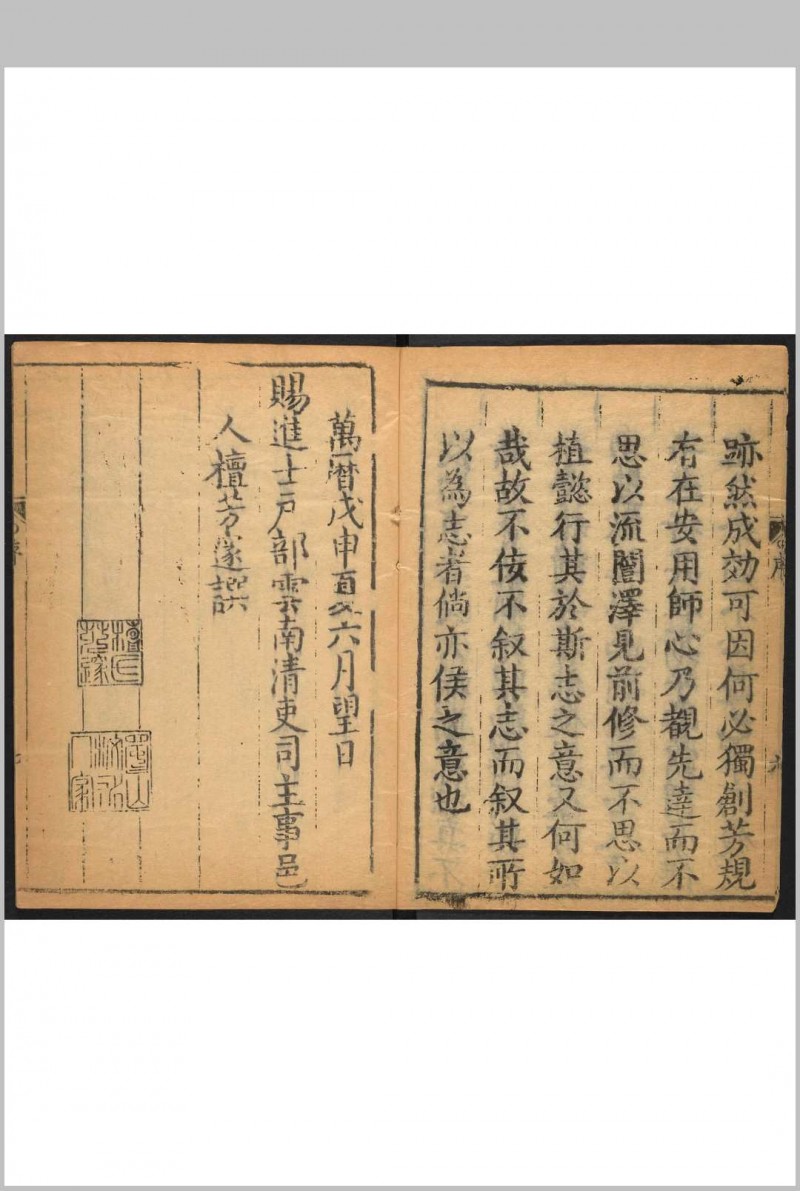 跡然成効可因何必獨創芳規
有在安用師心乃覩先達而不
思以流闓澤見前修而不思以
植懿行其於斯志之意又何如
哉故不佞不叙其志而叙其所
以為志者倘亦侯之意也
萬曆戊申夏六月望日
賜進士戶部雲南清吏司主事邑
人檀芳䆳撰
檀氏芳䆳